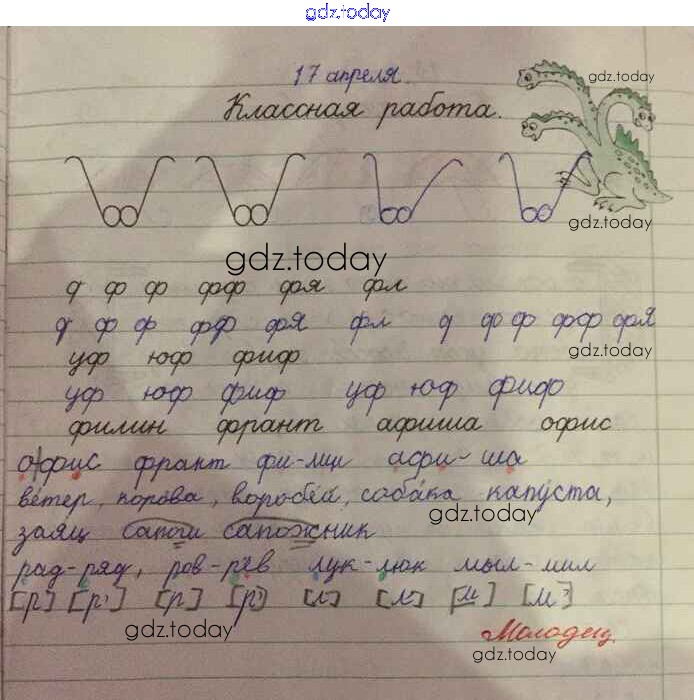 gdz.today
17 апреля.
gdz.today
Классная работа.
gdz.today
gdz.today
ф ф фф фя фл
ф ф фф фя фл ф ф фф фя
gdz.today
уф юф фиф
уф юф фиф уф юф фиф
филин франт афиша офис
офис франт фи-лин афи-ша
ветер, корова, воробéй, собáка капýста,
gdz.today
заяц сапоги сапожник
рад-ряд, ров-рёв лук-люк мыл-мил
[р] [р'] [р] [р'] [л] [л'] [м] [м']
gdz.today
Молодец
gdz.today